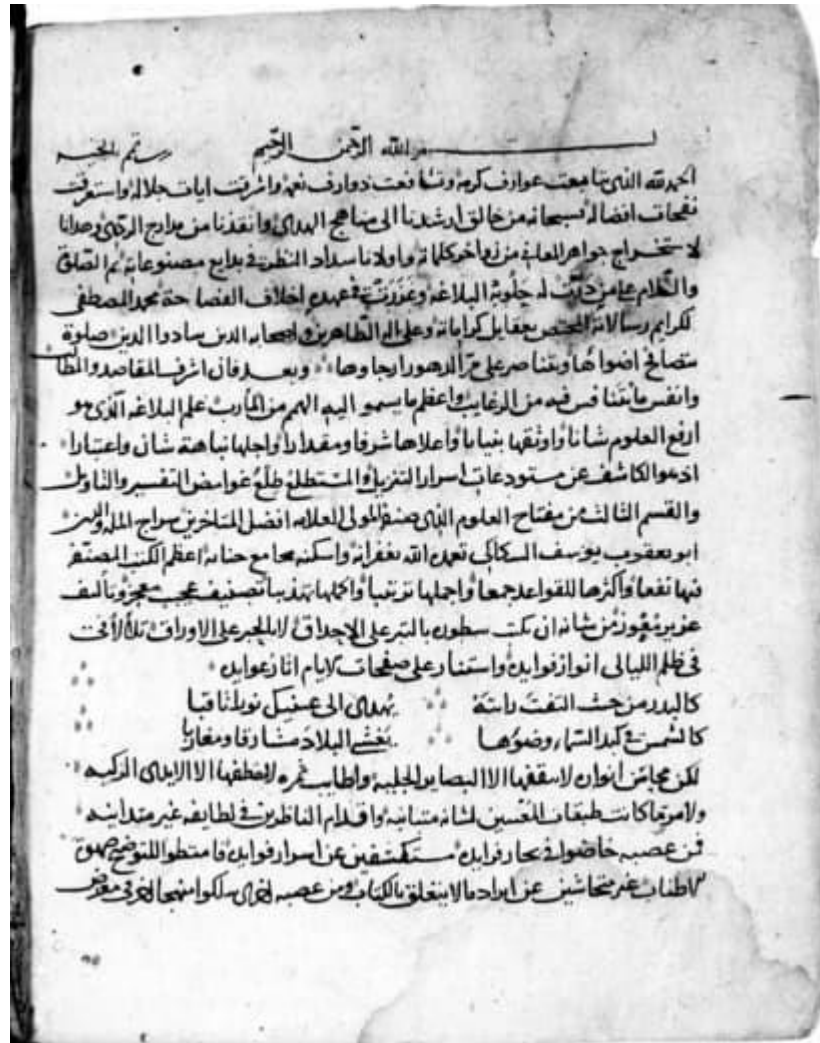 بسم الله الرحمن الرحيم رب تمم بالخير
الحمد لله الذي تتابعت عوارف كرمه وتشافعت ذوارف نعمه واشرقت ايات جلاله واستغرقت
نفحات افضاله سبحانه من خالق ارشدنا الى مناهج الهدى وانقذنا من مدارج الردى وهدانا
لاستخراج جواهر المعاني من زواخر كلماته واولانا سداد النظر في بدايع مصنوعاته ثم الصلوة
والسلام على من له البلاغه في عهده اخلاف الفصاحة محمد المصطفى
لكرايم رسالاته المختص بعقايل كراماته وعلى اله الطاهرين واصحابه الذين سادوا الدين صلوة
اضواها وتتناصر على مر الدهور ارجاوها وبعد فان اشرف المقاصد والمطالب
وانفس ما يتنافس فيه من الرغايب واعظم ما يسمو اليه الهمم من المآرب علم البلاغه الذي هو
ارفع العلوم شانا واوثقها بنيانا واعلاها شرفا ومقدارا واجلها نباهة شان واعتبارا
اذ هو الكاشف عن مستودعات اسرار التنزيل والمستطلع طلع غوامض التفسير والتاويل
والقسم الثالث من مفتاح العلوم الذي صنفه المولى العلامه افضل المتاخرين سراج المله والدين
ابو يعقوب يوسف السكاكي تغمده الله بغفرانه واسكنه مجامع جنانه اعظم الكتب المصنفه
فيها نفعا واكثرها للقواعد جمعا واجملها ترتيبا واكملها تهذيبا تصنيف عجيب معجز وتاليف
عزيز من شانه ان يكتب سطوره بالتبر على الاحداق لا بالحبر على الاوراق تلألأت
في ظلم الليالي انوار فوايده واستنار على صفحات الايام اثار عوايده
كالبدر من حيث التفت رايته يهدي الى عينيك نورا ثاقبا
كالشمس في كبد السماء وضوها يغشى البلاد مشارقا ومغاربا
لكن محاسن انواره لا الا البصاير الجليه واطايب ثمره لا يقطفها الا الايدي الزكيه
ولا مرية ما كانت طبقات لشانه متباينه واقدام الناظرين في لطايفه غير متدانيه
فمن عصبه خاضوا في بحار فوايده مستكشفين عن اسرار فوايده فامتطوا للتوضيح صهوة
الاطناب غير متحاشين عن ايراد ما لا يتعلق بالكتاب ومن عصبه اخرى سلكوا منهجا اخر في معرض